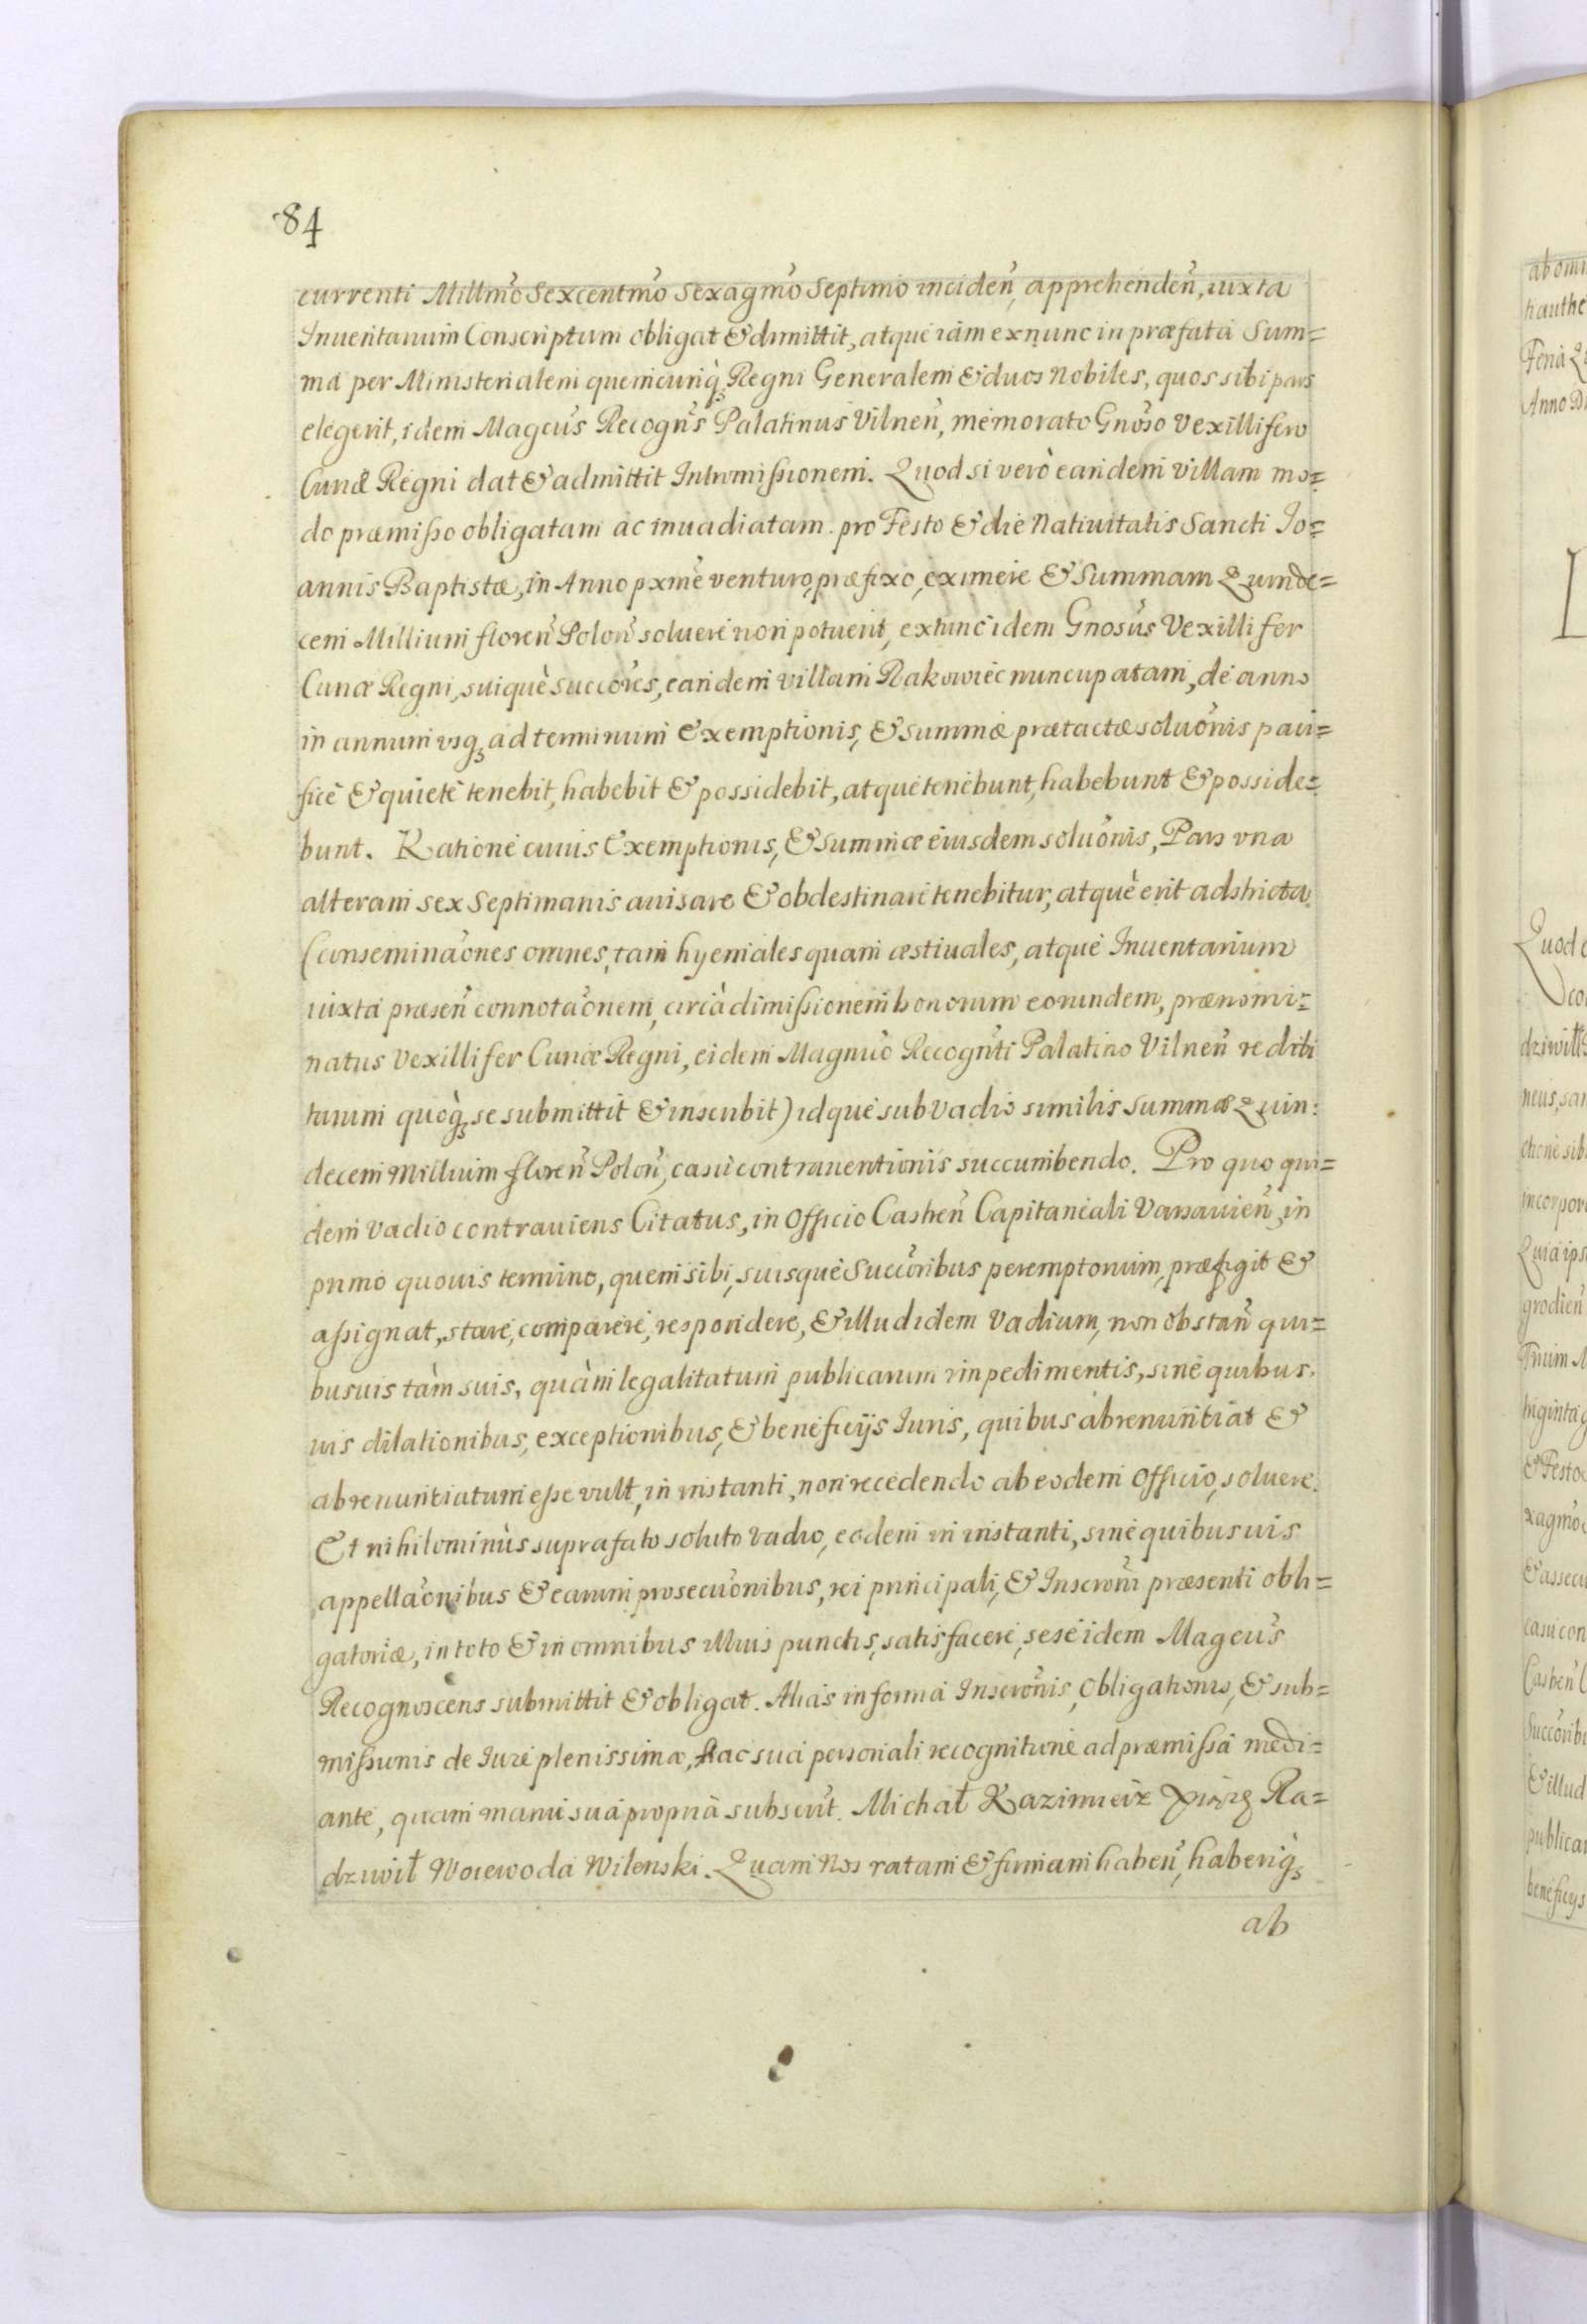 84
currenti Millmo Sexcentmo Sexagmo Septimo inciden, apprehenden, iuxta
Inuentarium Conscriptum obligat & dimittit, atque iam ex nunc in præfata Sum=
ma per Ministerialem quemcunq Regni Generalem & duos Nobiles, quos sibi pars
elegerit, idem Magcus Recogns Palatinus Vilnen, memorato Gnoso Vexillifero
Curiæ Regni dat & admittit Intromissionem. Quod si verò eandem villam mo=
do præmisso obligatam ac inuadiatam pro Festo & die Natiuitatis Sancti Jo=
annis Baptistæ, in Anno pxme venturo, præfixo, eximere & Summam Quinde=
cem Millium floren Polon soluere non potuerit, extunc idem Gnosus Vexillifer
Curiæ Regni, suique succores, eandem villam Rakowiec nuncupatam, de anno
in annum vsq ad terminum Exemptionis, & summæ prætactæ soluonis paci=
fice & quiete tenebit, habebit & possidebit, atque tenebunt, habebunt & posside=
bunt. Ratione cuius Exemptionis, & summæ eiusdem soluonis, Pars vna
alteram sex Septimanis auisare & obdestinare tenebitur, atque erit adstricta
(conseminaones omnes, tam hyemales quam æstiuales, atque Inuentarium
iuxta præsen connotaonem, circa dimissionem bonorum eorundem, prænomi=
natus Vexillifer Curiæ Regni, eidem Magnuo Recognti Palatino Vilnen reditu
turum quoq se submittit & inscribit) idque sub vadio similis summæ Quin:
decem Millium floren Polon, casu contrauentionis succumbendo. Pro quo qui=
dem vadio contrauiens Citatus, in Officio Castren Capitaneali Varsauien, in
primo quouis termino, quem sibi, suisque Succoribus peremptorium, præfigit &
assignat, stare, comparere, respondere, & illud idem Vadium, non obstan qui=
busuis tàm suis, quàm legalitatum publicarum impedimentis, sine quibus
uis dilationibus, exceptionibus, & beneficijs Iuris, quibus abrenuntiat &
abrenuntiatum esse vult, in instanti, non recedendo ab eodem Officio, soluere.
Et nihilominùs suprafato soluto vadio, eodem in instanti, sine quibusuis
appellaonibus & earum prosecuonibus, rei principali, & Inscroni præsenti obli=
gatoriæ, in toto & in omnibus illius punctis, satisfacere, sese idem Magcus
Recognoscens submittit & obligat. Alias in forma Inscronis, Obligationis, & sub=
missionis de Iure plenissimæ, hac sua personali recognitione ad præmissa medi=
ante, quam manu sua propria subscrit. Michał Kazimierz Xiążę Ra=
dziwił Woiewoda Wilenski. Quam Nos ratam & firmam haben, haberiq
ab